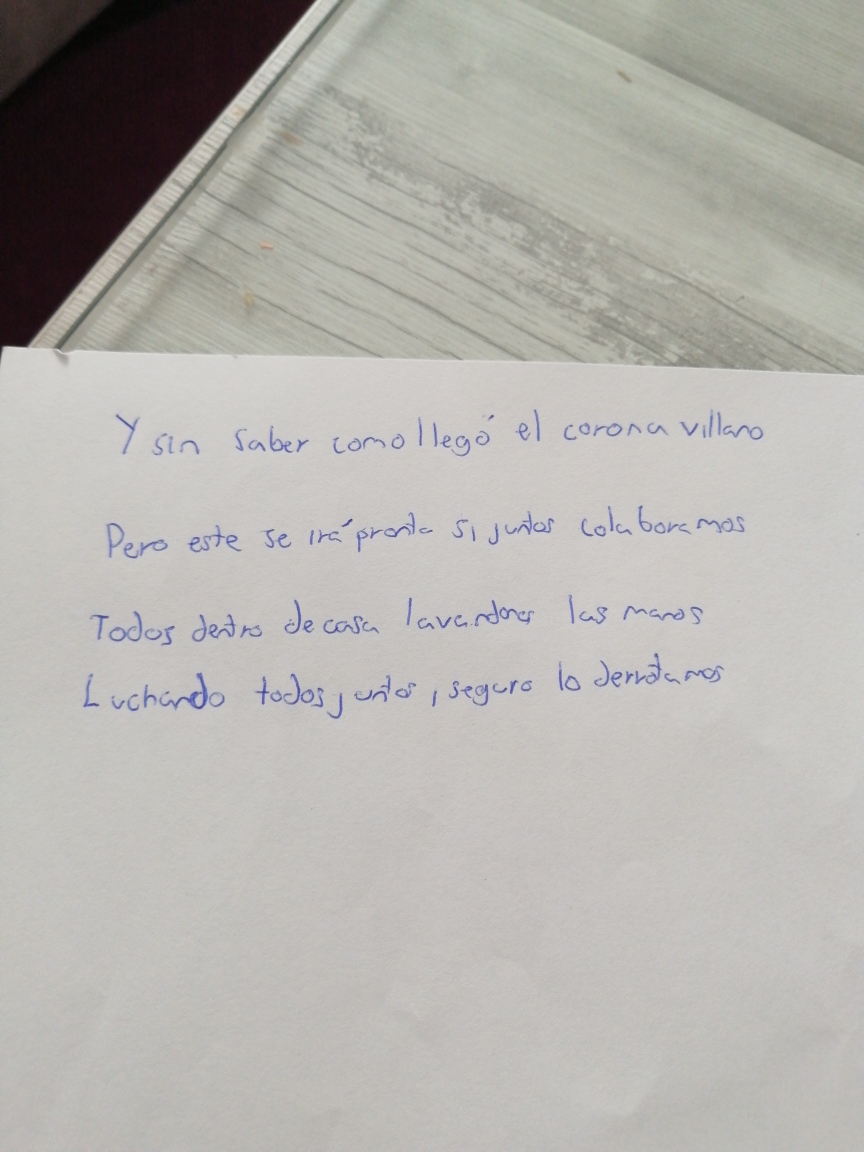 Y sin saber como llegó el corona villano
Pero este se irá pronto si juntos colaboramos
Todos dentro de casa lavandonos las manos
Luchando todos juntos, seguro lo derrotamos